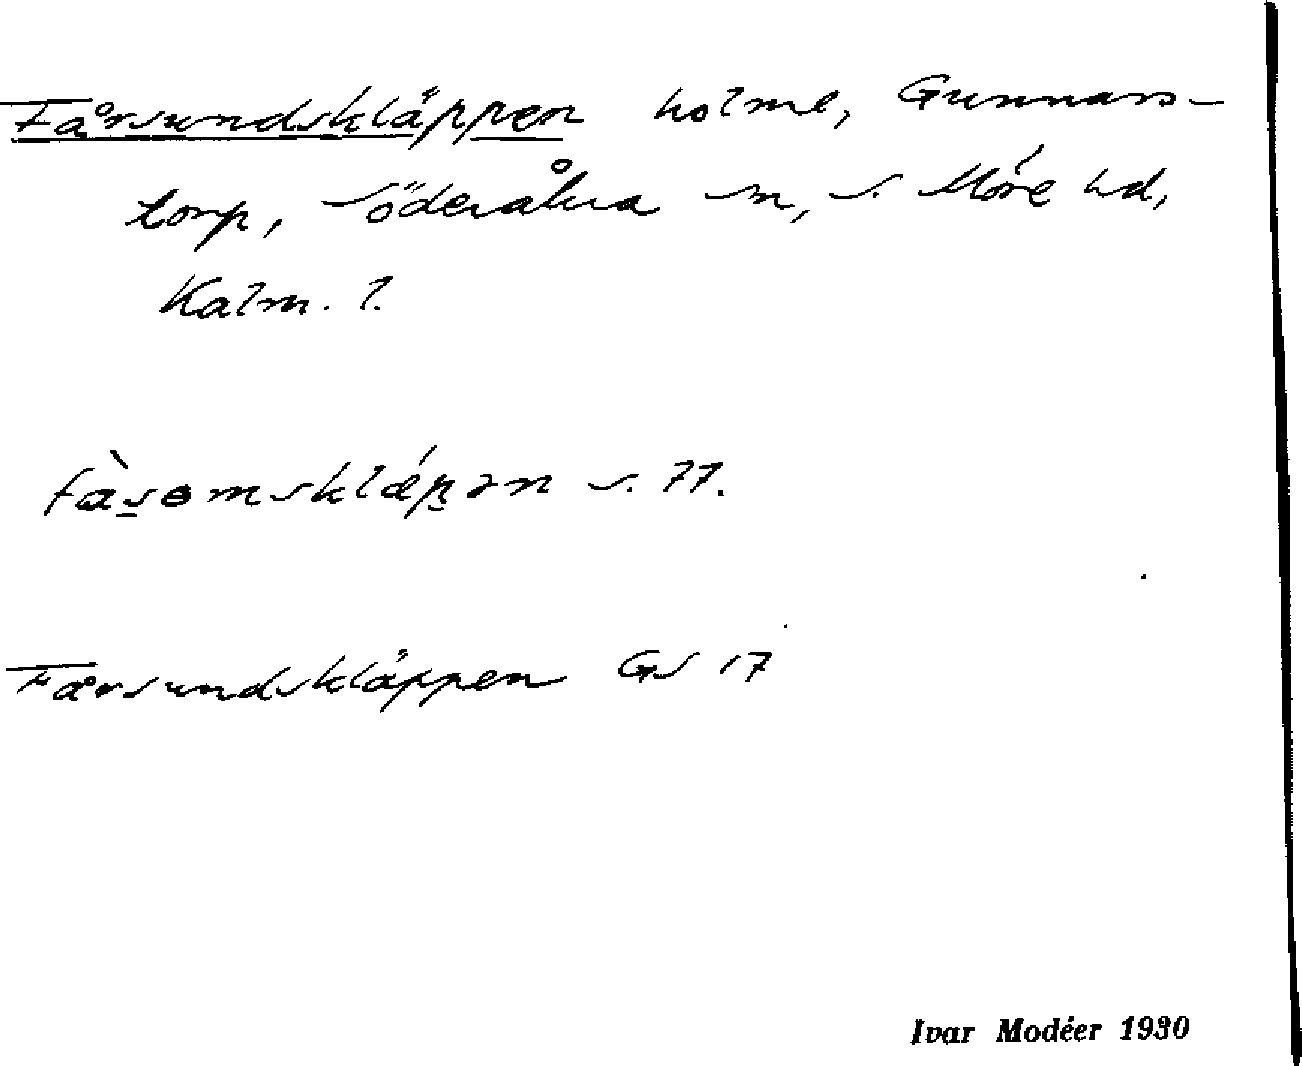 Fårsundskläppen holme, Gunnars-
torp, Söderåkra sn, S. Möre hd,
Kalm. l.
fàsomsklǽpən s. 77.
Fårsundskläppen GS 17
Ivar Modéer 1930